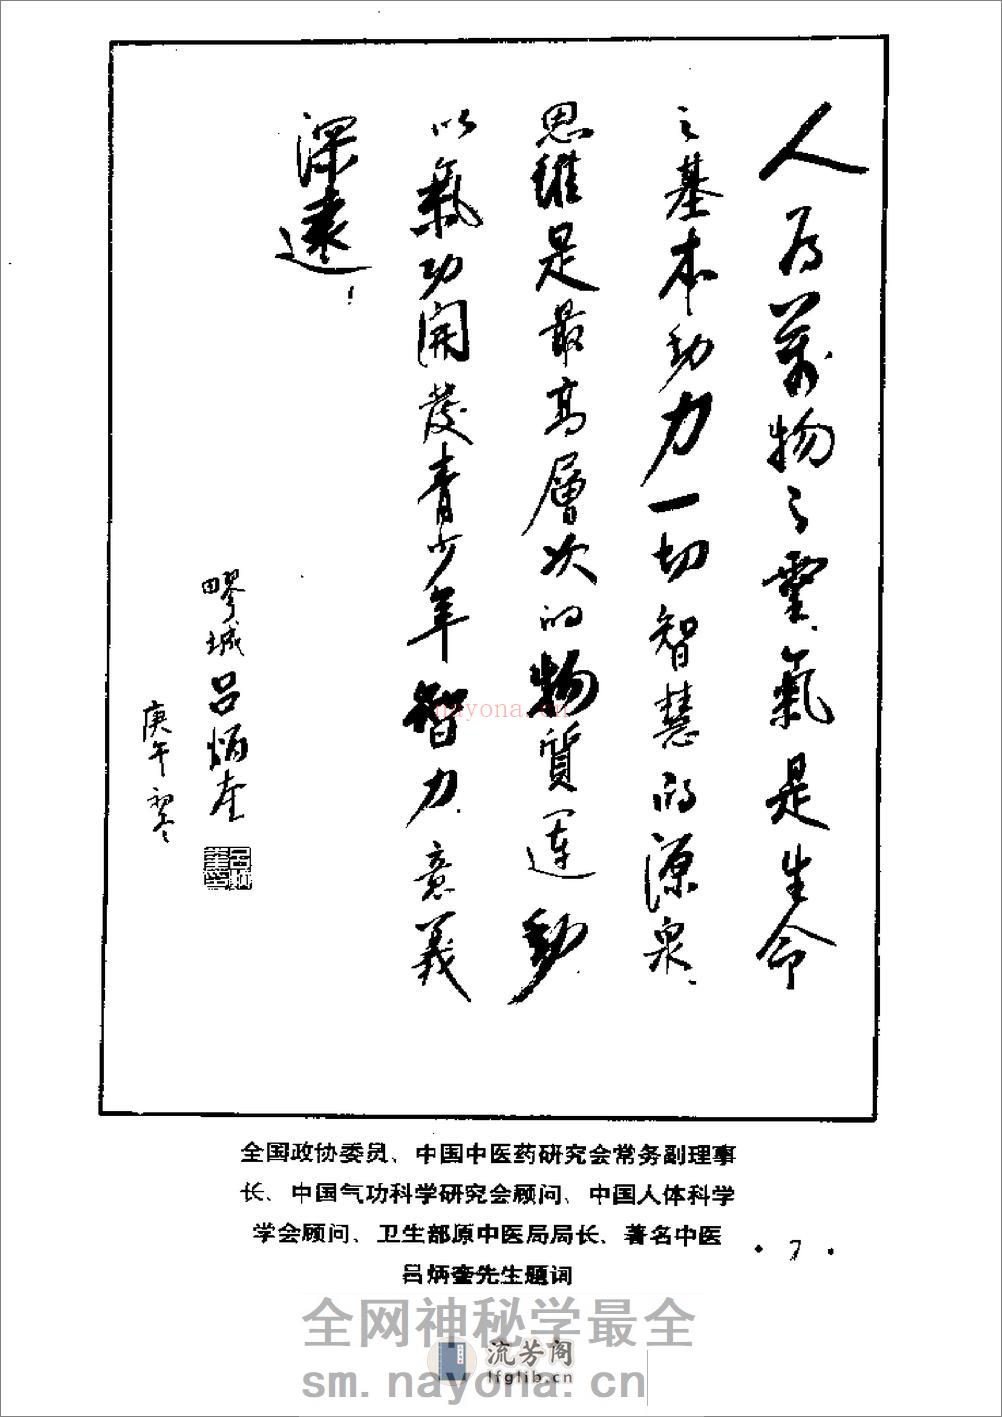 人为萬物之靈、氣是生命
之基本動力一切智慧的源泉、
思維是最高層次的物質運動、
以氣功開發青少年智力、意義
深遠！
疁城吕炳奎
庚午初冬
全国政协委员、中国中医药研究会常务副理事
长、中国气功科学研究会顾问、中国人体科学
学会顾问、卫生部原中医局局长、著名中医
吕炳奎先生题词
·7·
nayona.cn
全网神秘学最全
流芳阁
lfglib.cn
sm.nayona.cn